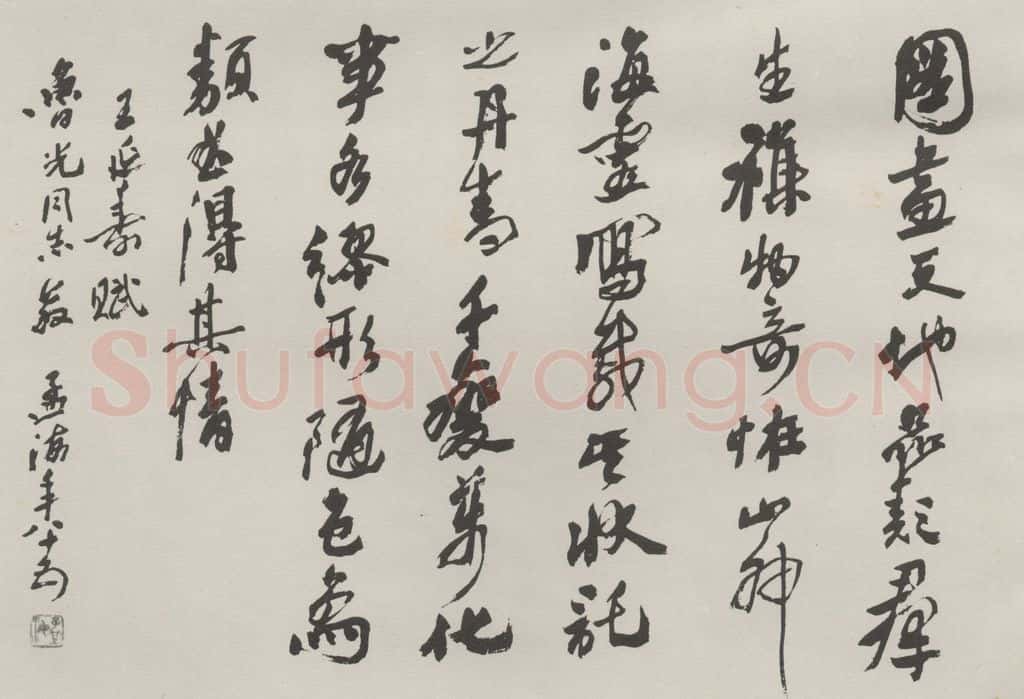 圖畫天地品類羣
生襍物奇怪山神
海靈寫載其狀託
之丹青千變萬化
事各繆形隨色象
類曲得其情
王延壽賦
魯光同志教 孟海年八十
Shufawang.CN